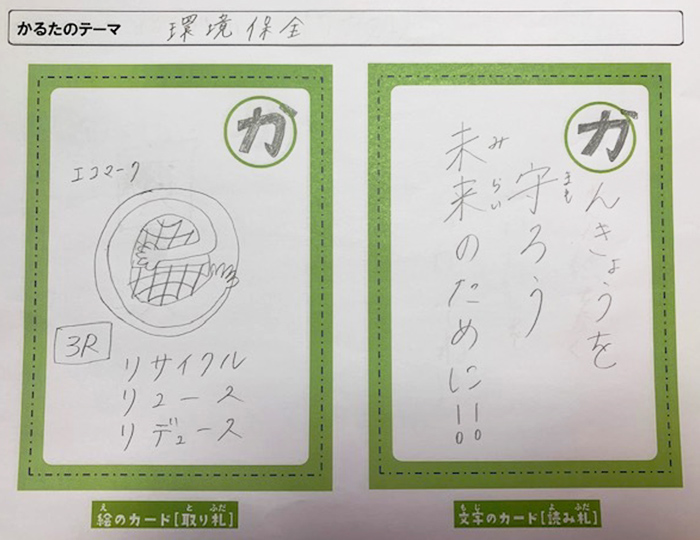 かるたのテーマ 環境保全
か
エコマーク
3R
リサイクル
リユース
リデュース
え と ふだ
絵のカード[取り札]
かんきょうを
守ろう
まも
未来のために!!
みらい
もじ よ ふだ
文字のカード[読み札]